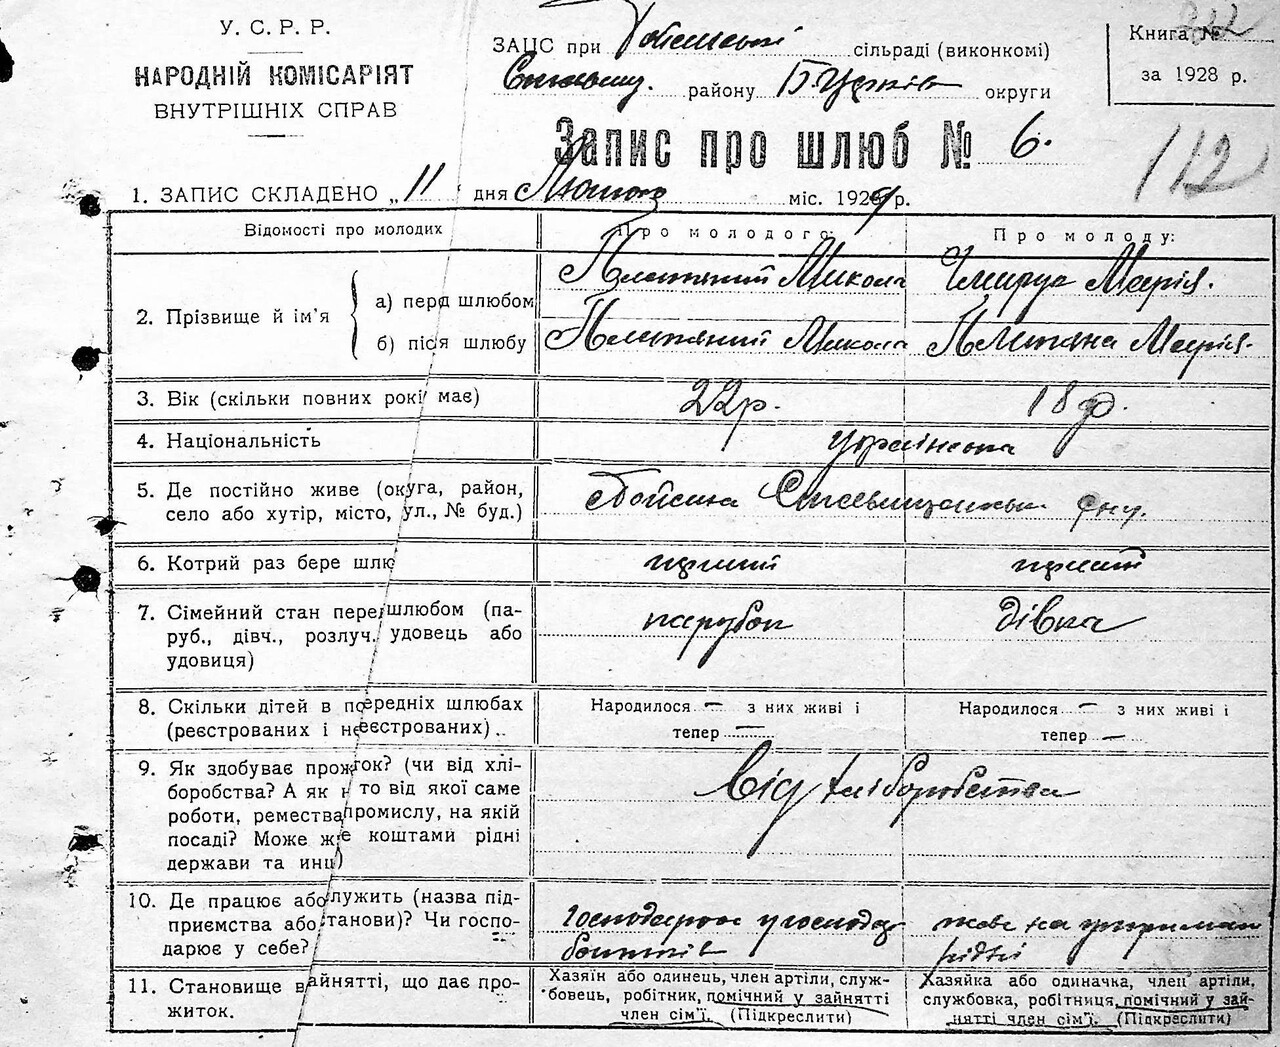 У. С. Р. Р.
НАРОДНІЙ КОМІСАРІЯТ
ВНУТРІШНІХ СПРАВ
ЗАЦС при сільраді (виконкомі)
району Б. Церків округи
Книга №
за 1928 р.
Запис про шлюб № 6.
112
1. ЗАПИС СКЛАДЕНО „11 дня Лютого міс. 1929 р.
Відомості про молодих
Про молодого:
Про молоду:
2. Прізвище й ім'я
а) перед шлюбом
Микола
Марія.
б) після шлюбу
Микола
Марія.
3. Вік (скільки повних років має)
22 р.
18 р.
4. Національність
українська
5. Де постійно живе (округа, район,
село або хутір, місто, ул., № буд.)
6. Котрий раз бере шлю
перший
перший
7. Сімейний стан перед шлюбом (па-
руб., дівч., розлуч. удовець або
удовиця)
парубок
дівка
8. Скільки дітей в попередніх шлюбах
(реєстрованих і нереєстрованих)..
Народилося — з них живі і
тепер —
Народилося — з них живі і
тепер —
9. Як здобуває прожток? (чи від хлі-
боробства? А як н то від якої саме
роботи, ремества промислу, на якій
посаді? Може живе коштами рідні
держави та инш)
Від хліборобства
10. Де працює або служить (назва під-
приємства або установи)? Чи госпо-
дарює у себе?
батьків
живе на утриман
рідні
11. Становище в зайнятті, що дає про-
житок.
Хазяїн або одинець, член артіли, служ-
бовець, робітник, помічний у зайнятті
член сім'ї. (Підкреслити)
Хазяйка або одиначка, член артіли,
службовка, робітниця, помічний у зай-
нятті член сім'ї. (Підкреслити)